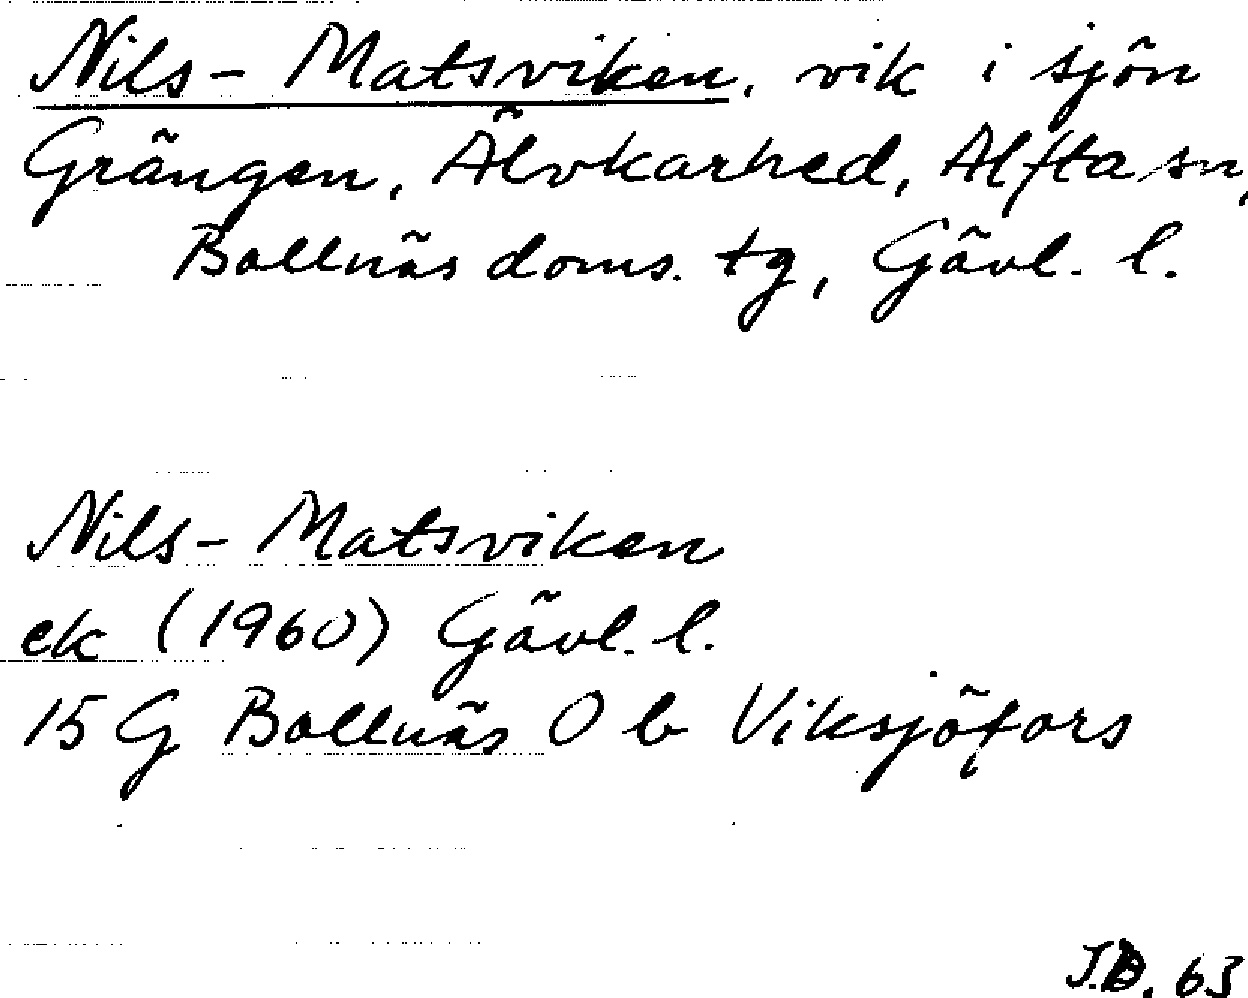 Nils-Matsviken, vik i sjön
Grängen, Älvkarhed, Alfta sn,
Bollnäs doms. tg, Gävl. l.
Nils-Matsviken
ek (1960) Gävl. l.
15 G Bollnäs 0 b Viksjöfors
J.D. 63